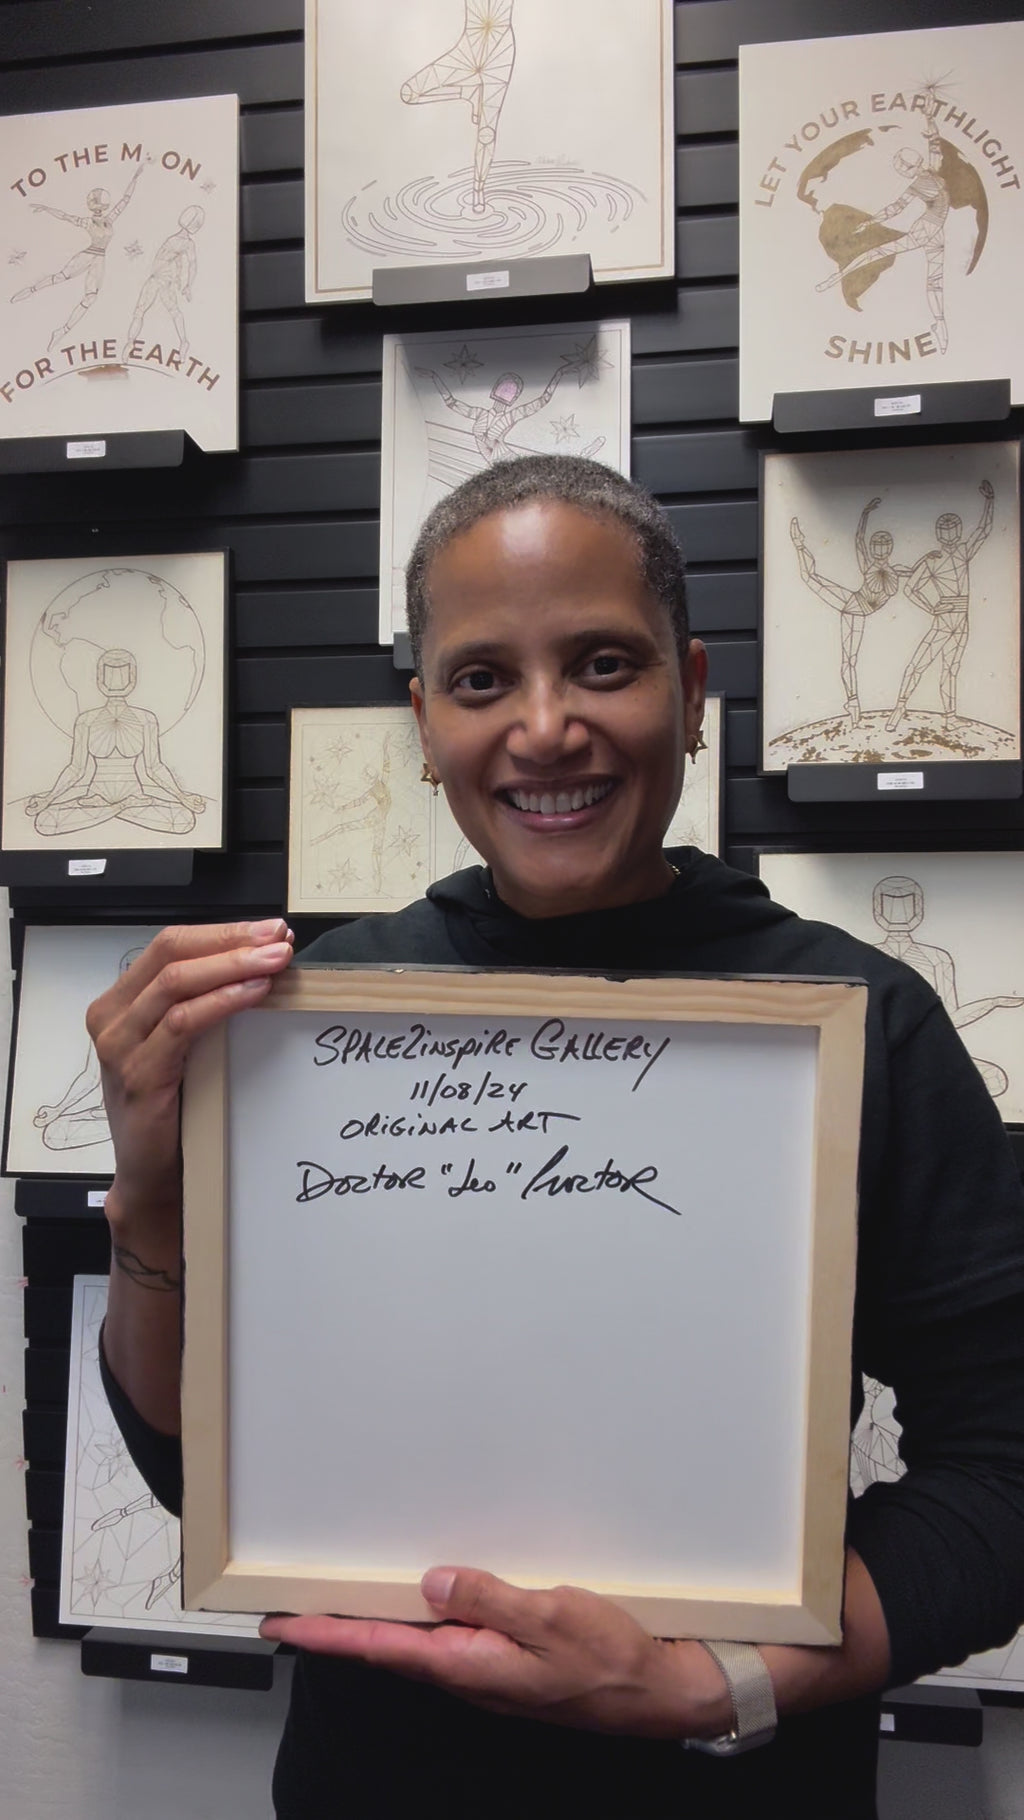 TO THE MOON
FOR THE EARTH
LET YOUR EARTHLIGHT
SHINE
SPACE2inspiRE GALLERY
11/08/24
ORIGINAL ART
DOCTOR "Leo" PROCTOR